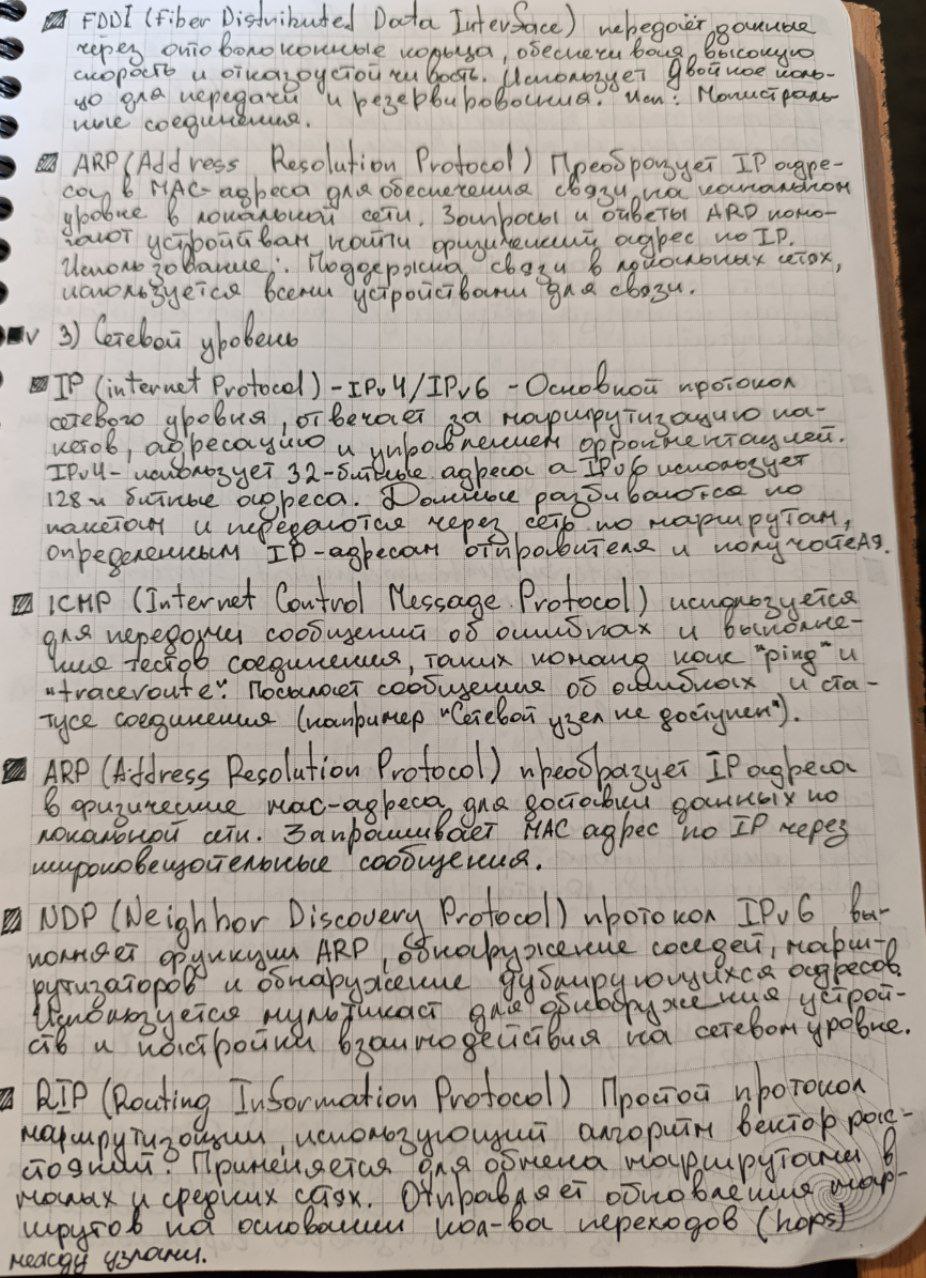 FDDI (Fiber Distributed Data Interface) передаёт данные
через оптоволоконные кольца, обеспечивая высокую
скорость и отказоустойчивость. Использует двойное коль-
цо для передачи и резервирования. Исп: Магистраль-
ные соединения.
ARP (Address Resolution Protocol) Преобразует IP адре-
са в MAC-адреса для обеспечения связи на канальном
уровне в локальной сети. Запросы и ответы ARP помо-
гают устройтвам найти физический адрес по IP.
Использование: Поддержка связи в локальных сетях,
используется всеми устройствами для связи.
v 3) Сетевой уровень
IP (internet Protocol) - IPv4/IPv6 - Основной протокол
сетевого уровня, отвечает за маршрутизацию па-
кетов, адресацию и управлением фрагментацией.
IPv4 - использует 32-битные адреса а IPv6 использует
128и битные адреса. Данные разбиваются по
пакетам и передаются через сеть по маршрутам,
определенным IP-адресам отправителя и получателя.
ICMP (Internet Control Message Protocol) используется
для передачи сообщений об ошибках и выполне-
ния тестов соединения, таких команд как "ping" и
"traceroute". Посылает сообщения об ошибках и ста-
тусе соединения (например "Сетевой узел не доступен").
ARP (Address Resolution Protocol) преобразует IP адреса
в физические мас-адреса для доставки данных по
локальной сети. Запрашивает MAC адрес по IP через
широковещательные сообщения.
NDP (Neighbor Discovery Protocol) протокол IPv6 вы-
полняет функции ARP, обнаружение соседей, марш-
рутизаторов и обнаружение дублирующихся адресов.
Используется мультикаст для обнаружения устрой-
ств и настройки взаимодействия на сетевом уровне.
RIP (Routing Information Protocol) Простой протокол
маршрутизации, использующий алгоритм вектор рас-
стояний. Применяется для обмена маршрутами в
малых и средних сетях. Отправляет обновления мар-
шрутов на основании кол-ва переходов (hops)
между узлами.